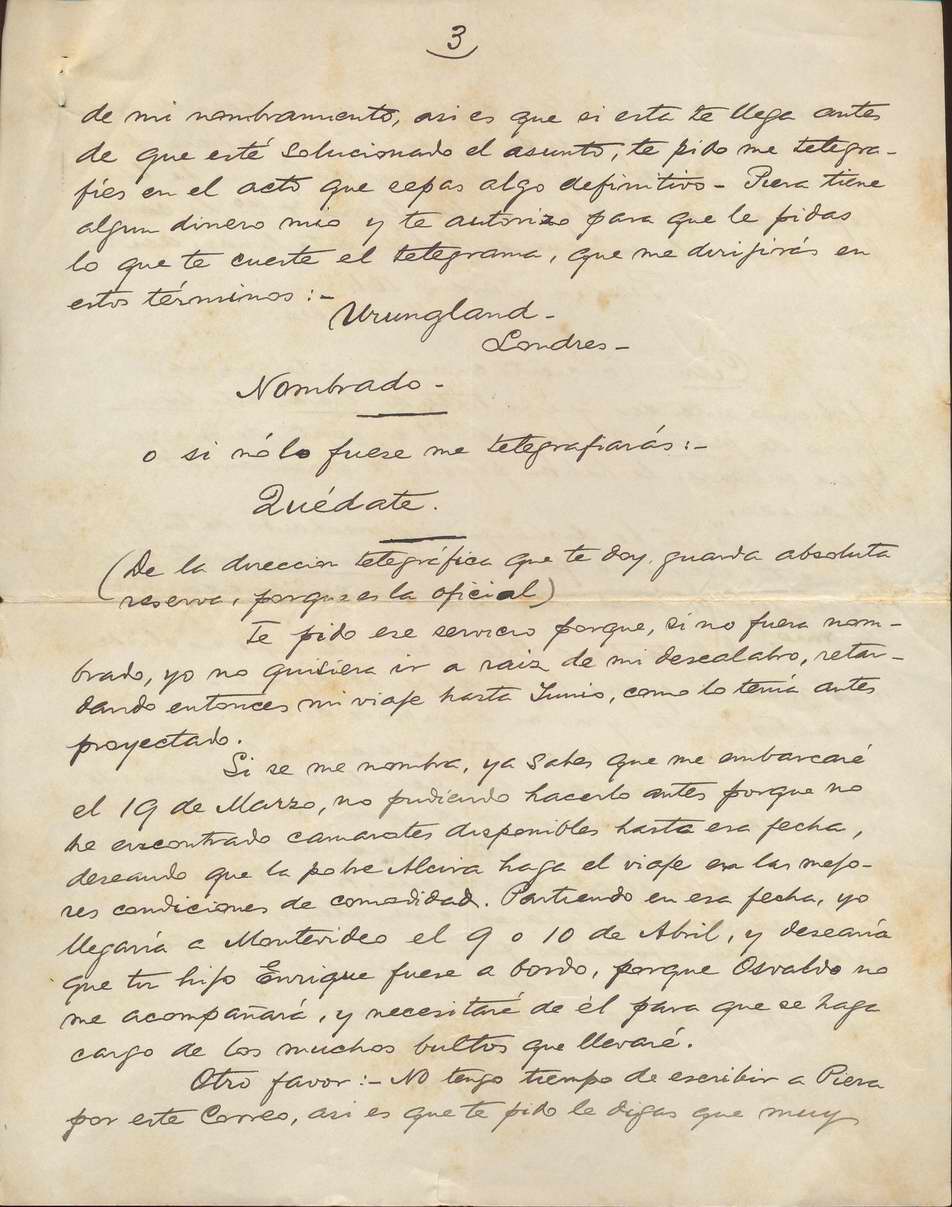 3
de mi nombramiento, asi es que si esta te llega antes
de que esté solucionado el asunto, te pido me telegra-
fíes en el acto que sepas algo definitivo - Piera tiene
algun dinero mio y te autorizo para que le pidas
lo que te cueste el telegrama, que me dirijirás en
estos términos :-
Urungland -
Londres -
Nombrado -
o si nó lo fuese me telegrafiarás :-
Quédate.
(De la direccion telegráfica que te doy, guarda absoluta
reserva, porque es la oficial)
Te pido ese servicio porque, si no fuera nom-
brado, yo no quisiera ir a raiz de mi descalabro, retar-
dando entonces mi viaje hasta Junio, como lo tenía antes
proyectado.
Si se me nombra, ya sabes que me embarcaré
el 19 de Marzo, no pudiendo hacerlo antes porque no
he encontrado camarotes disponibles hasta esa fecha,
deseando que la pobre Alcira haga el viaje en las mejo-
res condiciones de comodidad. Partiendo en esa fecha, yo
llegaría a Montevideo el 9 o 10 de Abril, y desearía
que tu hijo Enrique fuese a bordo, porque Osvaldo no
me acompañará, y necesitaré de él para que se haga
cargo de los muchos bultos que llevaré.
Otro favor :- No tengo tiempo de escribir a Piera
por este Correo, asi es que te pido le digas que muy